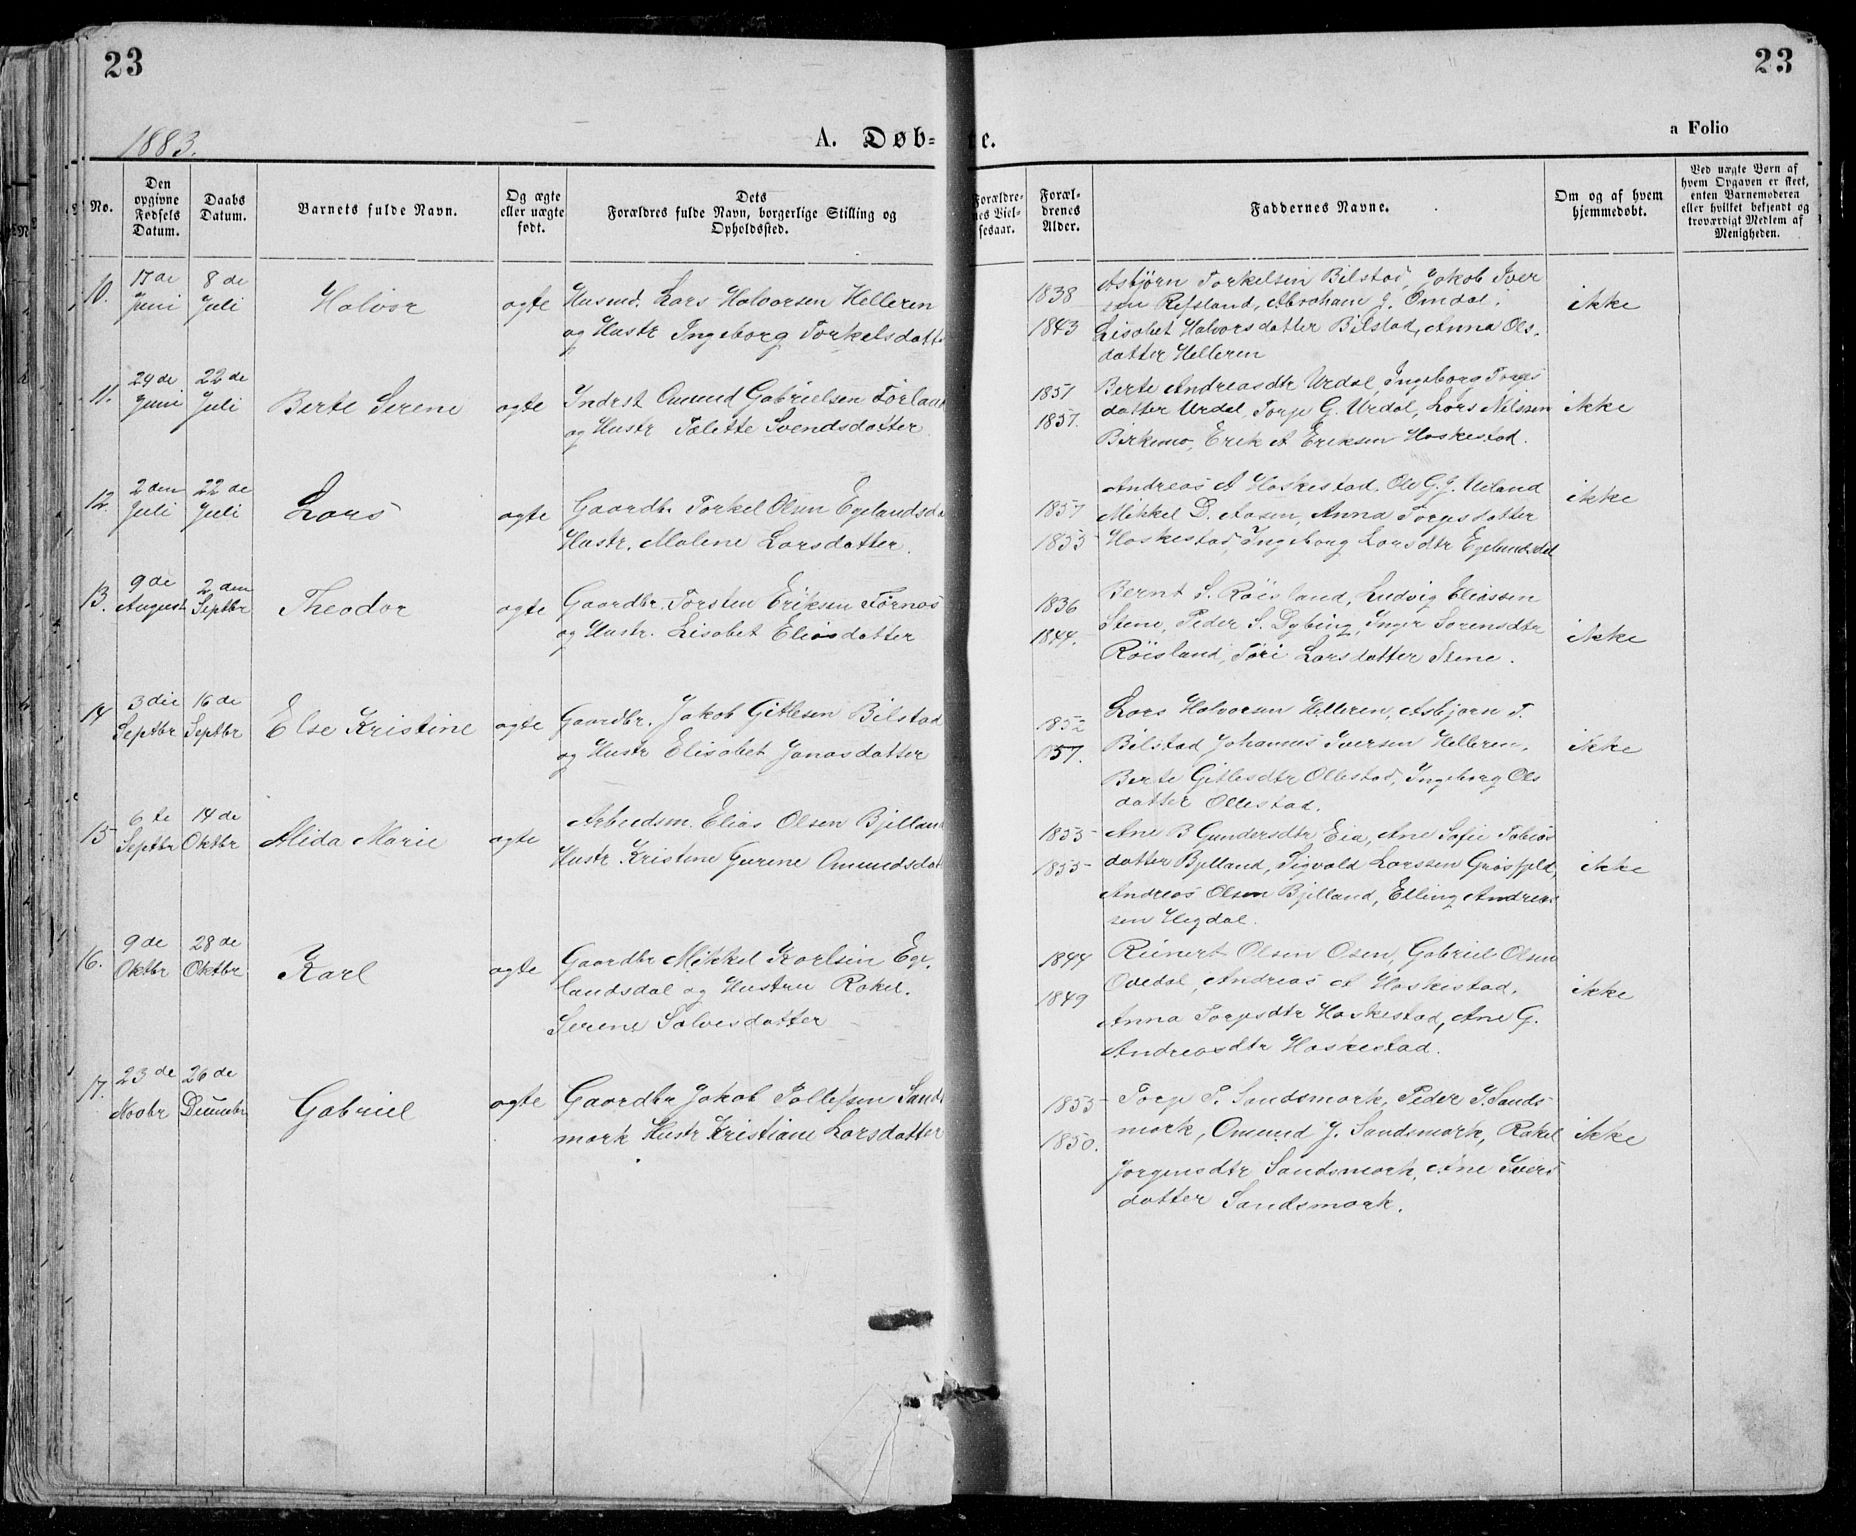 23
23
1883.
A. Døb-
te.
a Folio
No.
Den opgivne Fødsels Datum.
Daabs Datum.
Barnets fulde Navn.
Og ægte eller uægte født.
Dets Forældres fulde Navn, borgerlige Stilling og Opholdssted.
Forældre-nes Viel-sesaar.
Foræl-drenes Alder.
Faddernes Navne.
Om og af hvem hjemmedøbt.
Ved uægte Børn af hvem Opgaven er skeet, enten Barnemoderen eller hvilket bekjendt og troværdigt Medlem af Menigheden.
10. 17de Juni 8de Juli Halvor ægte
Husmd. Lars Halvorsen Helleren
og Hustr Ingeborg Torkelsdatt
1838
1843
Asbjörn Torkelsen Bilstad, Jakob Iver
sen Refsland, Abraham J. Omdal.
Lisabet Halvorsdatter Bilstad, Anna Ols-
datter Helleren
ikke
11. 29de Juni 22de Juli Berte Serene ægte
Inderst Omund Gabrielsen Førland
og Hustr Talette Svendsdatter
1851
1857.
Berte Andreasdtr Urdal, Ingeborg Torges
datter Urdal, Torge G. Urdal, Lars Nilssen
Birkemo, Erik A Eriksen Haskestad.
ikke
12. 2den Juli 22de Juli Lars ægte
Gaardbr. Torkel Olsen Egelandsda
Hustr. Malene Larsdatter.
1857
1855
Andreas A Haskestad. Ole G. J. Ueland
Mikkel D. Aasen, Anna Torgesdatter
Haskestad, Ingeborg Larsdtr Egelandsdal
ikke
13. 9de August 2den Septbr Theodor ægte
Gaardbr. Torsten Eriksen Tørnøs
og Hustr. Lisabet Eliasdatter
1836
1844.
Bernt S. Röisland, Ludvig Eliassen
Stene, Peder S. Dybing, Inger Sorensdtr
Röisland, Töri Larsdatter Stene.
ikke
14 3die Septbr 16de Septbr Else Kristine ægte
Gaardbr. Jakob Gitlesen Bilstad
og Hustr Elisabet Janasdatter
1852
1857.
Lars Halvorsen Helleren, Asbjorn T.
Bilstad Johannes Iversen Helleren.
Berte Gitlesdtr Ollestad, Ingeborg Ols
datter Ollestad.
ikke
15 6te Septbr 14de Oktbr Alida Marie ægte
Arbeidsm. Elias Olsen Bjelland
Hustr Kristine Gurine Omundsdat
1855
1855
Ane B Gundersdtr Eia, Ane Sofie Tobias
datter Bjelland, Sigvald Larssen Grøsfjeld,
Andreas Olsen Bjelland, Elling Andreas
sen Hegdal.
ikke
16. 9de Oktbr 28de Oktbr Karl ægte
Gaardbr Mikkel Karlsen Ege
landsdal og Hustru Rakel
Serene Salvesdatter
1844
1849
Reinert Olsen Osen, Gabriel Olsen
Ovedal, Andreas A Haskestad,
Anna Torgesdtr Haskestad, Ane G.
Andreasdtr Haskestad.
ikke
17. 23de Novbr 26de Decembr Gabriel ægte
Gaardbr Jakob Tollefsen Sands
mark Hustr Kristiane Larsdatter
1855
1850.
Torge T. Sandsmark, Peder J. Sands-
mark, Omund J. Sandsmark, Rakel
Jorgensdtr Sandsmark, Ane Ivers
datter Sandsmark.
ikke